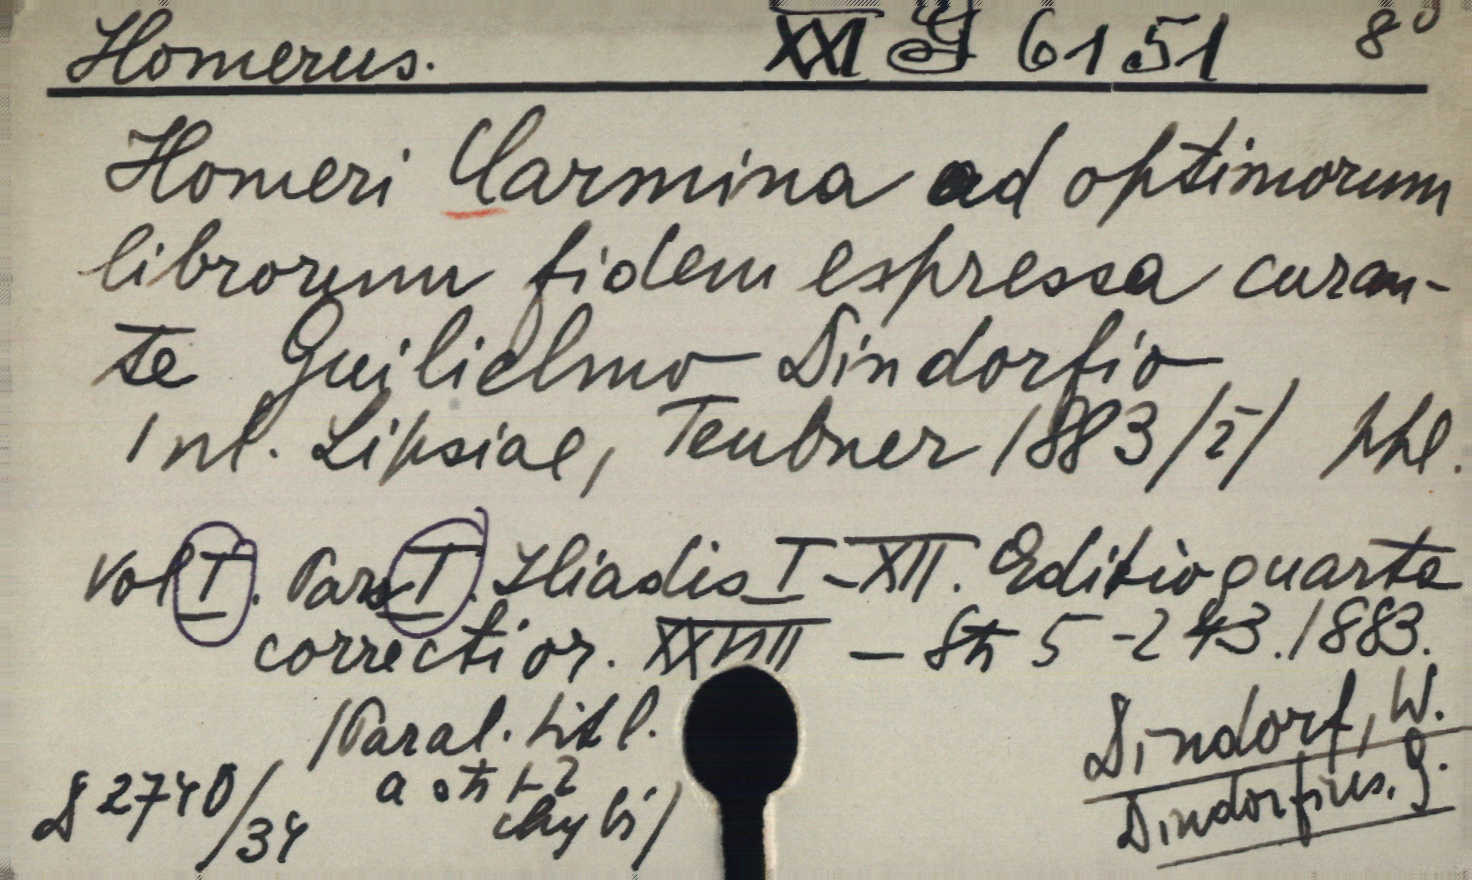 Homerus. XXI G 6151 8°
Homeri Carmina ad optimorum
librorum fidem expressa curan-
te Guilielmo Dindorfio
Lipsiae, Teubner 1883 ppl.
Vol I. Pars I. Iliadis I-XII. Editio quarta
correctior. XXVIII - Str 5-243. 1883.
/Paral. titl.
a str 1-2
chybí/
D 2740/34
Dindorf, W.
Dindorfius, G.